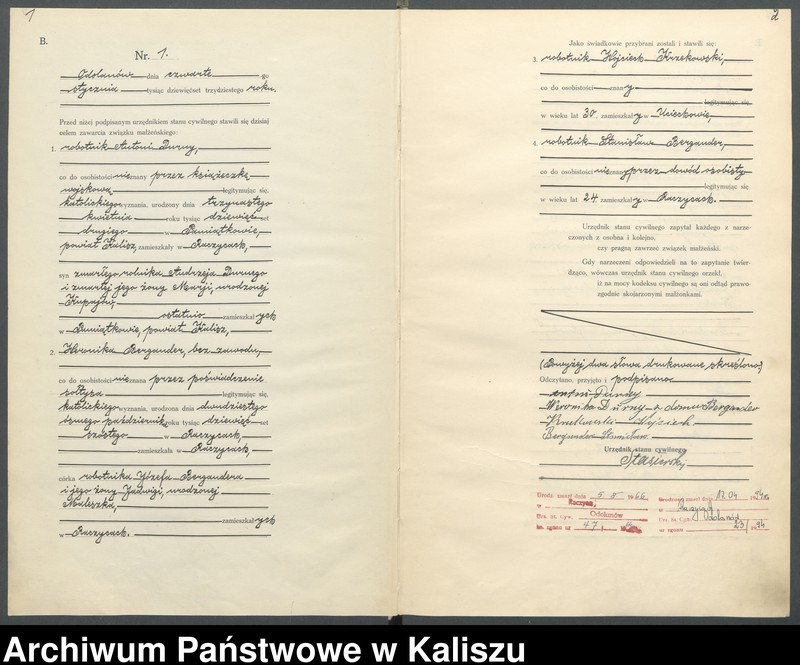 1
B.
Nr. 1.
Odolanów dnia czwarte go
stycznia tysiąc dziewięćset trzydziestego roku.
Przed niżej podpisanym urzędnikiem stanu cywilnego stawili się dzisiaj
celem zawarcia związku małżeńskiego:
1. robotnik Antoni Durny,
co do osobistości nieznany przez książeczkę
wojskową legitymując się,
katolickiego wyznania, urodzony dnia trzynastego
kwietnia roku tysiąc dziewięć set
drugiego w Pamiątkowie,
powiat Kalisz, zamieszkały w Raczycach,
syn zmarłego rolnika Andrzeja Durnego
i zmarłej jego żony Marji, urodzonej
ostatnio zamieszkał ych
w Pamiątkowie, powiat Kalisz,
2. Weronika Bergander, bez zawodu,
co do osobistości nieznana przez poświadczenie
sołtysa legitymując się,
katolickiego wyznania, urodzona dnia dwudziestego
ósmego październik roku tysiąc dziewięć set
szóstego w Raczycach,
zamieszkała w Raczycach,
córka robotnika Józefa Bergandera
i jego żony Jadwigi, urodzonej
Maliszka,
zamieszkał ych
w Raczycach.
2
Jako świadkowie przybrani zostali i stawili się:
3. robotnik Wojciech Krzekowski,
co do osobistości znany
legitymując się
w wieku lat 30 zamieszkały w Uciechowie,
4. robotnik Stanisław Bergander,
co do osobistości nieznany przez dowód osobisty
legitymując się
w wieku lat 24 zamieszkały w Raczycach.
Urzędnik stanu cywilnego zapytał każdego z narze-
czonych z osobna i kolejno,
czy pragną zawrzeć związek małżeński.
Gdy narzeczeni odpowiedzieli na to zapytanie twier-
dząco, wówczas urzędnik stanu cywilnego orzekł,
iż na mocy kodeksu cywilnego są oni odtąd prawo-
zgodnie skojarzonymi małżonkami.
(Powyżej dwa słowa drukowane skreślono)
Odczytano, przyjęto i podpisano
Antoni Durny
Weronika Durny z domu Bergander
Wojciech
Bergander Stanisław
Urzędnik stanu cywilnego
Urodz. zmarł dnia 5 II 1966
w Raczyce,
Urz. St. Cyw. Odolanów
Nr. zgonu nr 47
Urodzony zmarł dnia 12.04 1994
w Raczyce
Urz. St. Cyw. Odolanów
nr zgonu 23/1994
Archiwum Państwowe w Kaliszu